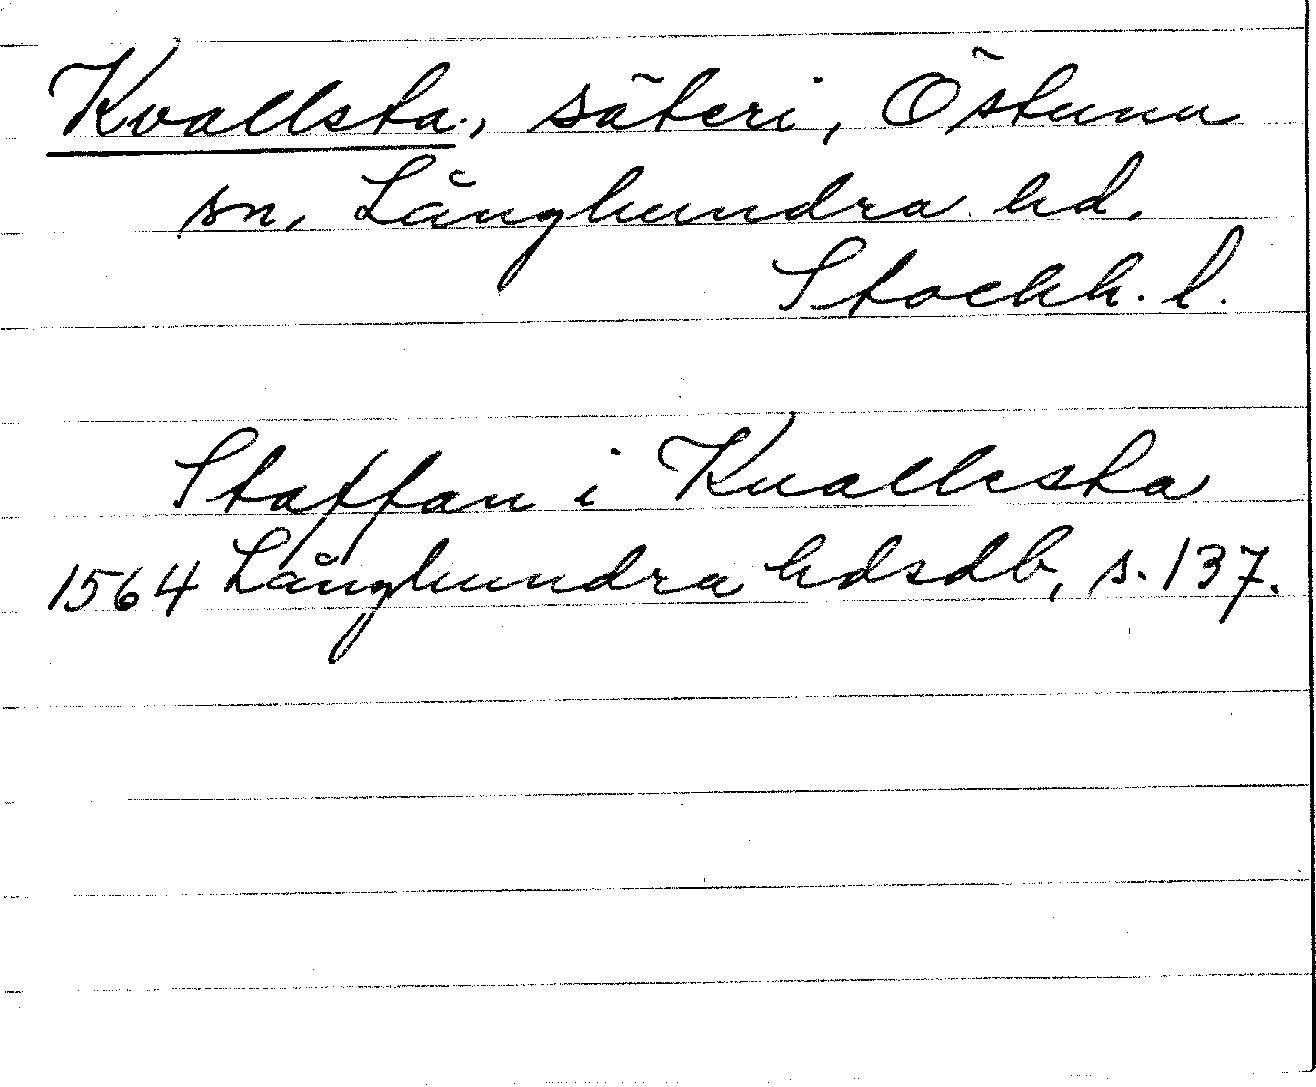 Kvallsta, säteri, Östuna
sn, Långhundra hd.
Stockh. l.
Staffan i Kuallesta
1564 Långhundra hdsdb, s. 137.